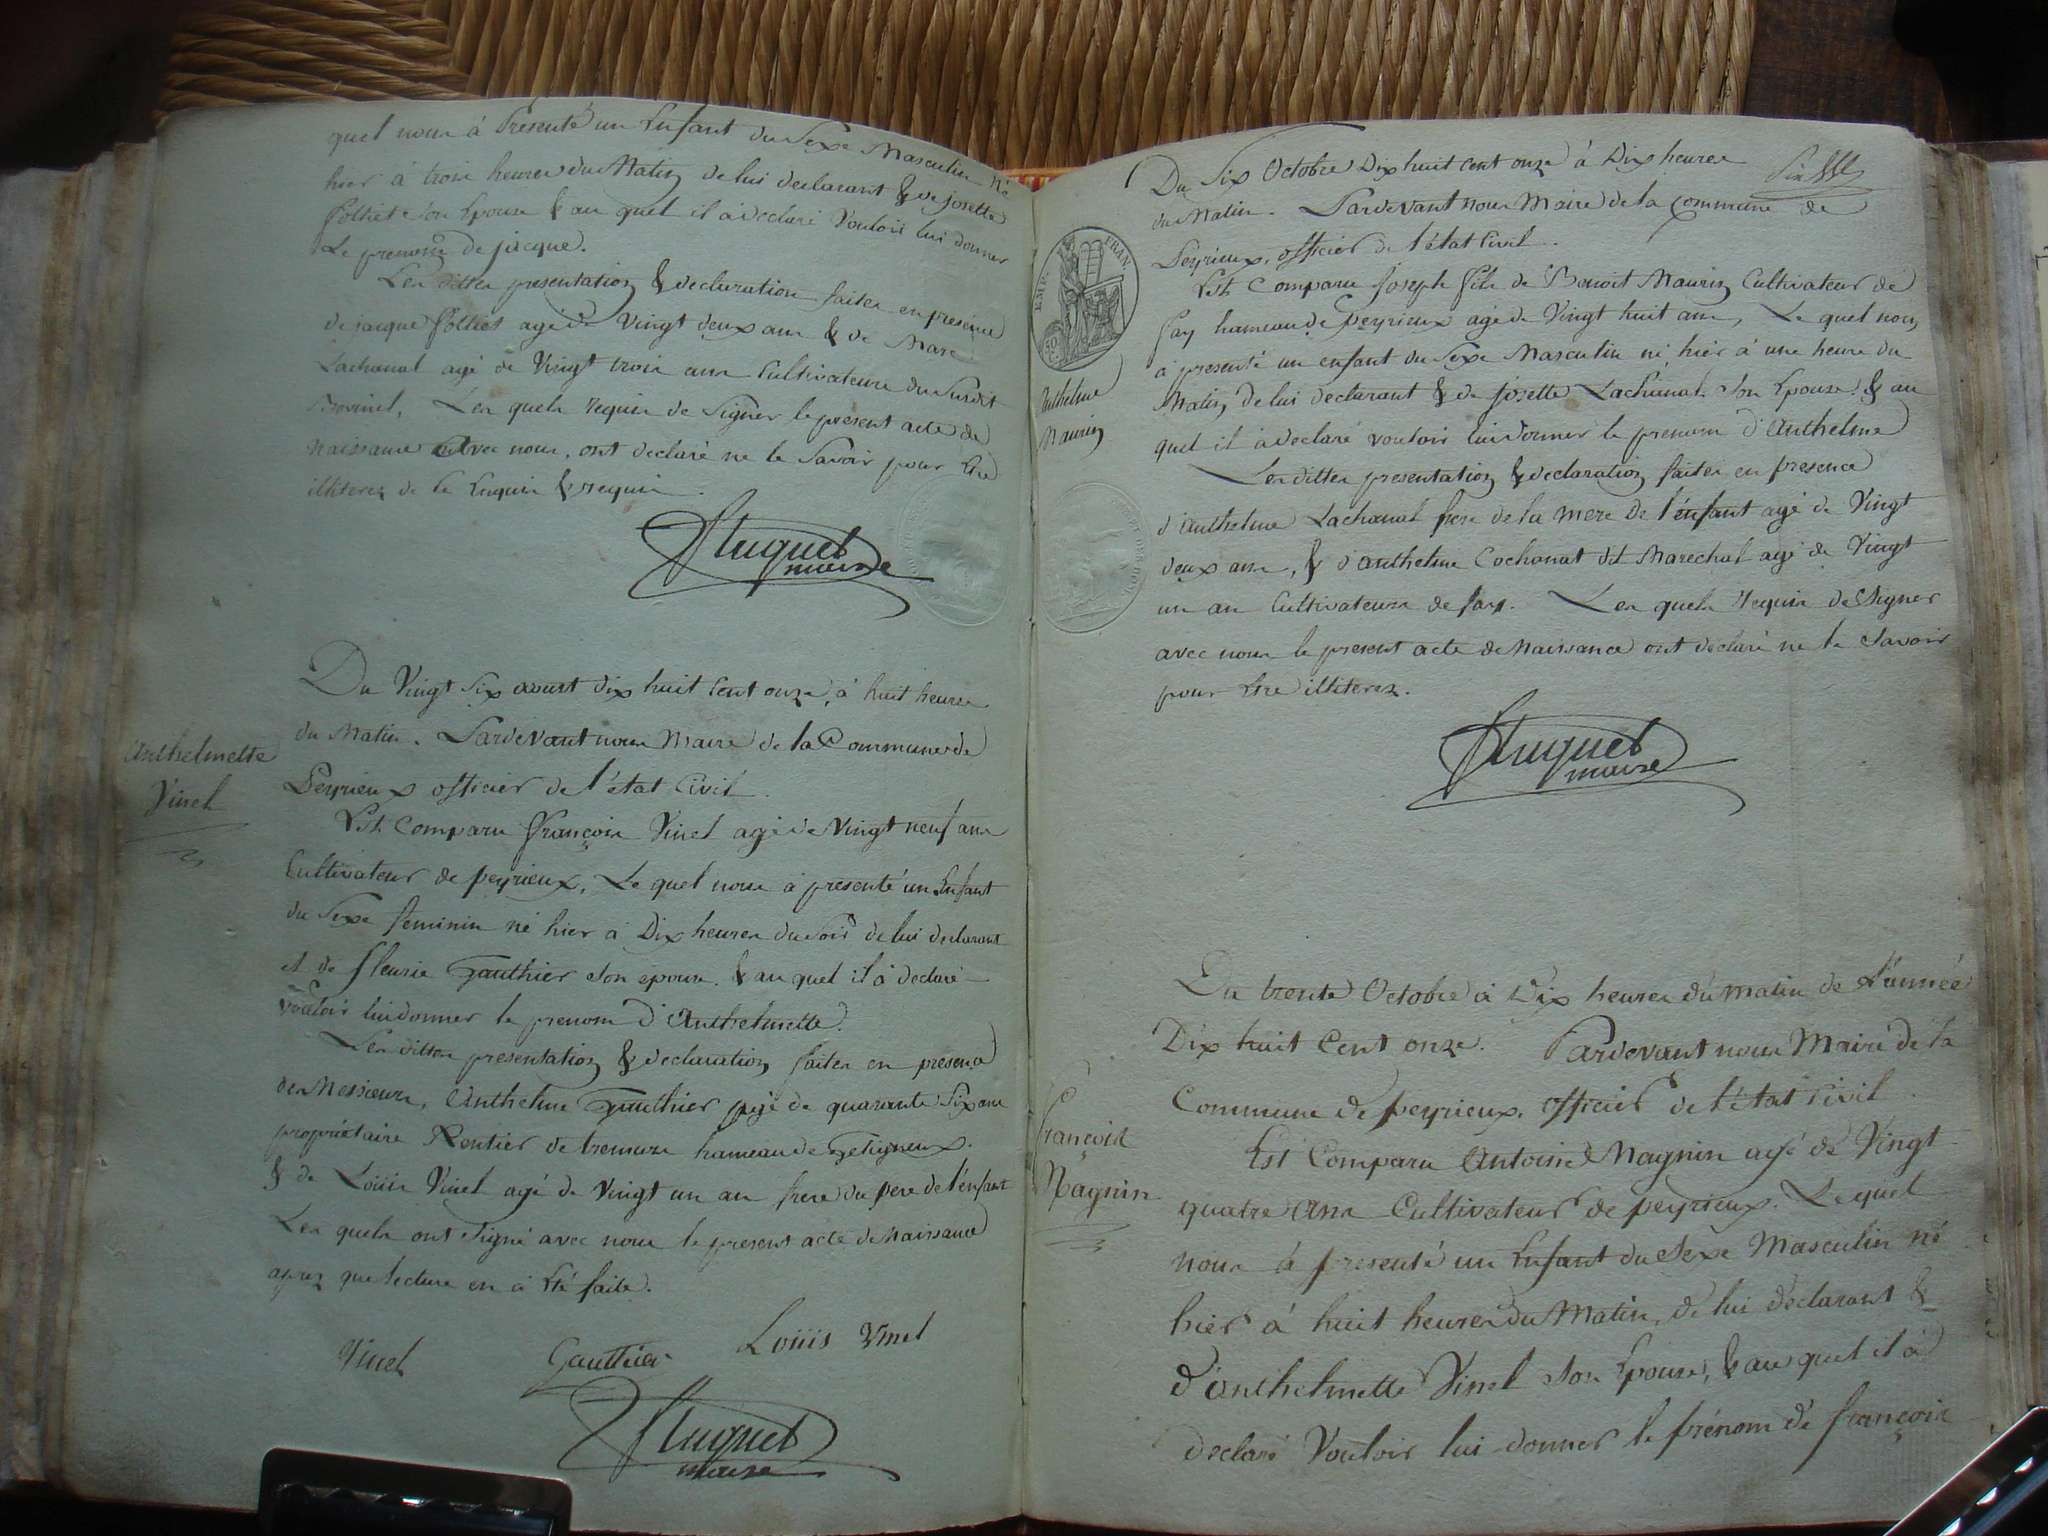 quel nous à Presenté un Enfant du Sexe Masculin né
hier à trois heures du Matin de lui declarant & de josette
Polliet son Epouse & au quel il à declaré Vouloir lui donner
Le prenom de jacque.
Les dittes presentation & declaration faites en presence
de jacque Polliet agé de Vingt deux ans & de Marc
Lachanal agé de Vingt trois ans Cultivateurs du Susdit
Les quels requis de Signer le present acte de
Naissance avec nous, ont declaré ne le Savoir pour être
illiterez de ce Enquis & requis.
Huguet
maire
Anthelmette
Vinel
Du Vingt Six aoust dix huit Cent onze, à huit heures
du Matin. Pardevant nous Maire de la Commune de
Peyrieux officier de l'état Civil.
Est Comparu François Vinel agé de Vingt neuf ans
Cultivateur de peyrieux, Le quel nous à presenté un Enfant
du Sexe feminin né hier à Dix heures du Soir de lui declarant
et de fleurie Gauthier son epouse. & au quel il à declaré
vouloir lui donner le prenom d'Anthelmette.
Les dittes presentation & declaration faites en presence
des Messieurs, Anthelme Gauthier agé de quarante Six ans
proprietaire Rentier de hameau de
& de Louis Vinel agé de Vingt un an frere du pere de l'énfant
Les quels ont Signé avec nous le present acte de Naissance
aprez que lecture en à Eté faite.
Vinel Gauthier Louis Vinel
Huguet
maire
Du Six Octobre Dix huit Cent onze à Dix heures
du Matin. Pardevant nous Maire de la Commune de
Peyrieux, officier de l'état Civil.
EMP. FRAN.
Est Comparu joseph fils de Benoit Maurin Cultivateur de
fay hameau de Peyrieux agé de Vingt huit ans, Le quel nous
à presenté un enfant du Sexe Masculin né hier à une heure du
Matin, de lui declarant & de josette Lachanal Son Epouse & au
quel il à declaré vouloir lui donner le prenom d'Anthelme
Anthelme
Maurin
Les dittes presentation & declaration faites en presence
d'Anthelme Lachanal frere de la mere de l'énfant agé de Vingt
deux ans, & d'Anthelme Cochonat dit Marechal agé de Vingt
un an Cultivateurs de fay. Les quels requis de Signer
avec nous le present acte de Naissance ont declaré ne le Savoir
pour Etre illiterez.
Huguet
maire
Du trente Octobre à Dix heures du matin de L'année
Dix huit Cent onze. Pardevant nous Maire de la
Commune de peyrieux, officier de l'état Civil.
François
Magnin
Est Comparu Antoine Magnin agé de Vingt
quatre Ans Cultivateur de peyrieux. Le quel
nous à presenté un Enfant du Sexe Masculin né
hier à huit heures du Matin, de lui declarant &
d'Anthelmette Vinel Son Epouse, & au quel il à
declaré Vouloir lui donner le prénom de françois